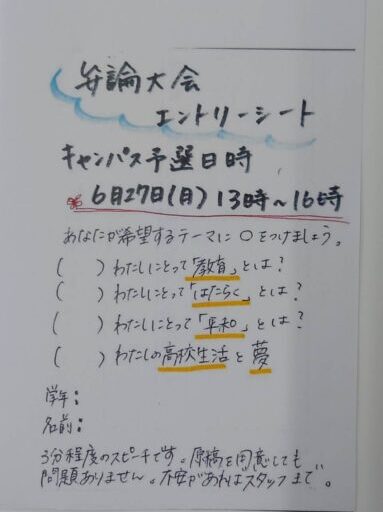 弁論大会
エントリーシート
キャンパス予選日時
※ 6月27日(月) 13時~16時
あなたが希望するテーマに〇をつけましょう。
(　　) わたしにとって「教育」とは?
(　　) わたしにとって「はたらく」とは?
(　　) わたしにとって「平和」とは?
(　　) わたしの高校生活と夢
学年:
名前:
3分程度のスピーチです。原稿を用意しても
問題ありません。不安があればスタッフまで。